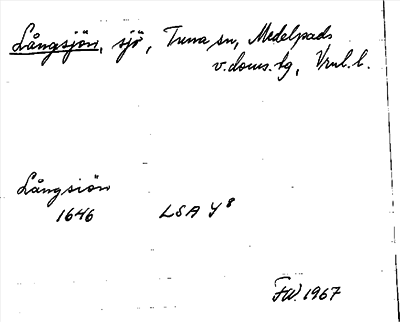 Långsjön, sjö, Tuna sn, Medelpads
v. doms. tg, Vnl. l.
Långsiön
1646 LSA Y 8
FW. 1967